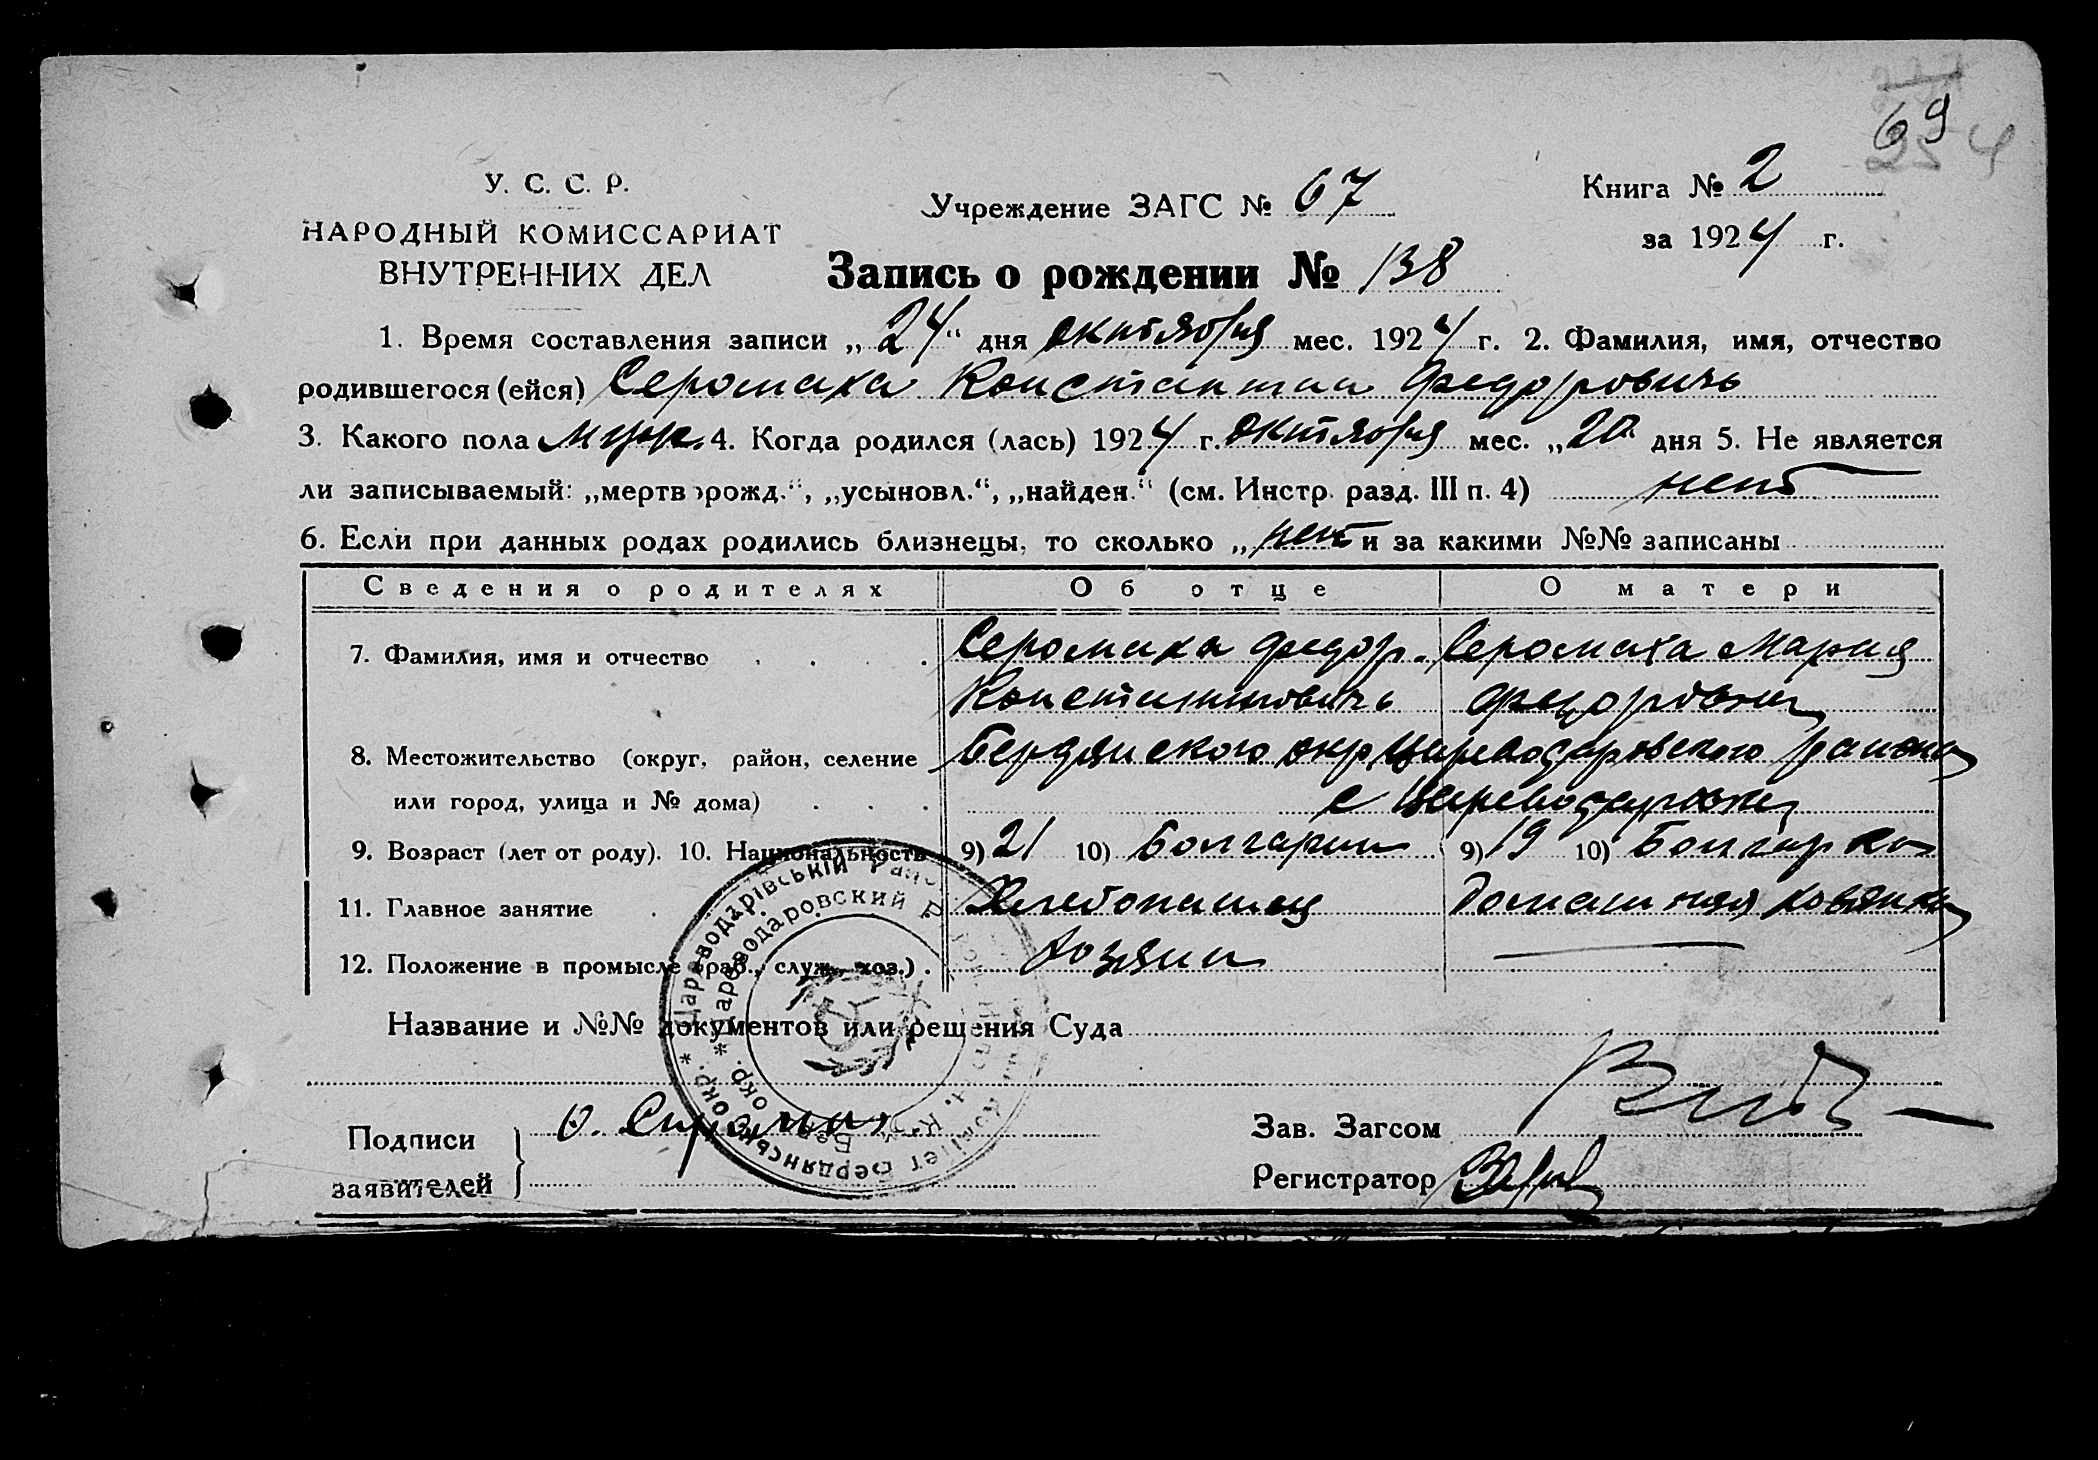 69
254
У. С. С. Р.
НАРОДНЫЙ КОМИССАРИАТ
ВНУТРЕННИХ ДЕЛ
Учреждение ЗАГС № 67
Книга № 2
за 1924 г.
Запись о рождении № 138
1. Время составления записи „24“ дня октября мес. 1924 г. 2. Фамилия, имя, отчество
родившегося (ейся) Серомаха Константин Федоровичь
3. Какого пола муж. 4. Когда родился (лась) 1924 г. октября мес. „20 дня 5. Не является
ли записываемый: „мертворожд.“, „усыновл.“, „найден.“ (см. Инстр. разд. III п. 4) нет
6. Если при данных родах родились близнецы, то сколько „нет и за какими №№ записаны
Сведения о родителях Об отце О матери
7. Фамилия, имя и отчество Серомаха Федор. Серомаха Мария
Константиновичь Федоровна
8. Местожительство (округ, район, селение Бердянского окр. Цареводаровского района
или город, улица и № дома) с Цареводаровка
9. Возраст (лет от роду). 10. Национальность 9) 21 10) Болгарин 9) 19 10) Болгарка
11. Главное занятие Хлебопашец Домашняя хозяйка
12. Положение в промысле (раб., служ., хоз.) хозяин
Название и №№ документов или решения Суда
Подписи
заявителей
Зав. Загсом
Регистратор
Цареводарівський Комітет Бердянської Окр.
Цареводаровский окр.